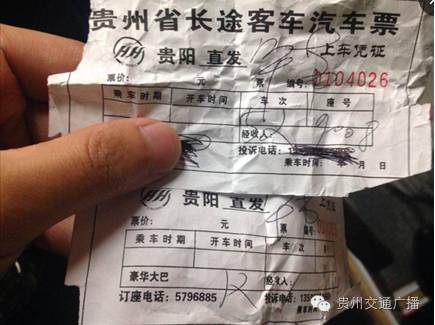 贵州省长途客车汽车票
贵阳 直发 上车凭证
票价: 元 票 编号: 0104026
乘车时期 开车时间 车次 座号
经收人:
投诉电话: 1
乘车时间: 年 月 日
贵阳 直发
票价: 元
乘车时期 开车时间 车
豪华大巴 经收人:
订座电话: 5796885 投诉电话: 135
乘车时
贵州交通广播